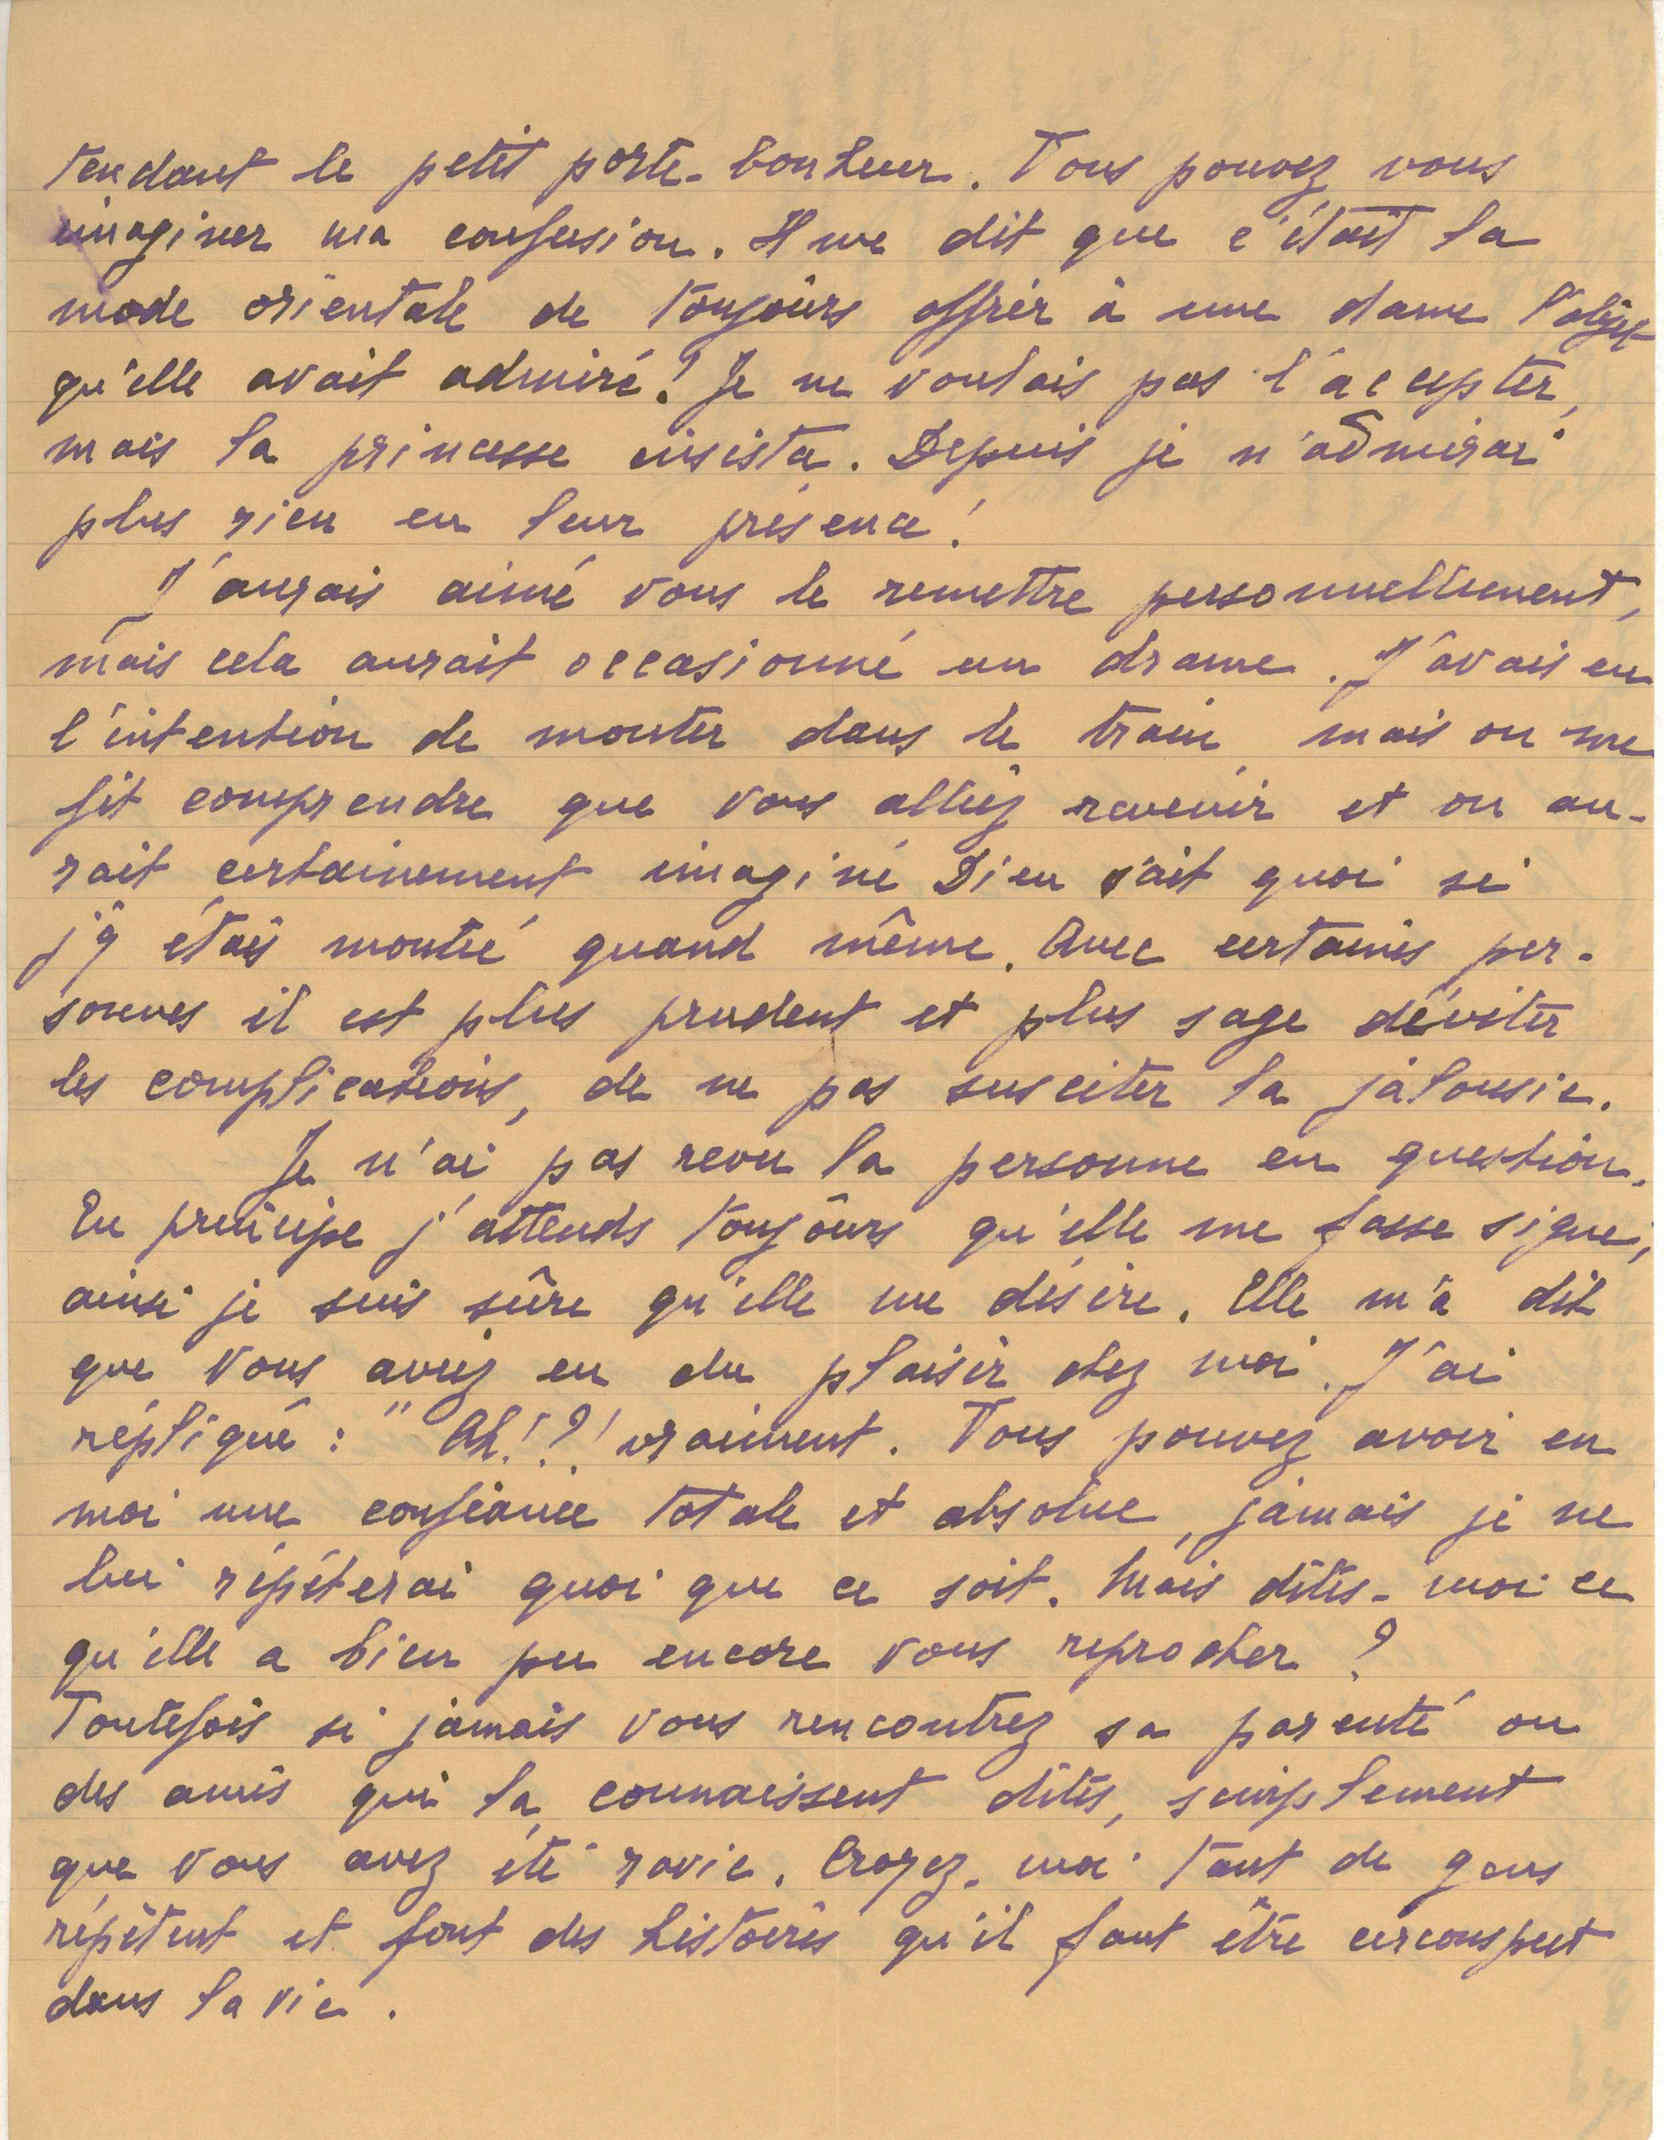 tendant le petit porte-bonheur. Vous pouvez vous
imaginer ma confusion. Il me dit que c'était la
mode orientale de toujours offrir à une dame l'objet
qu'elle avait admiré! Je ne voulais pas l'accepter,
mais la princesse insista. Depuis je n'admirai
plus rien en leur présence!
J'aurais aimé vous le remettre personnellement,
mais cela aurait occasionné un drame. J'avais eu
l'intention de monter dans le train, mais on me
fit comprendre que vous alliez revenir et on au-
rait certainement imaginé Dieu sait quoi si
j'y étais monté quand même. Avec certaines per-
sonnes il est plus prudent et plus sage d'éviter
les complications, de ne pas susciter la jalousie.
Je n'ai pas revu la personne en question.
En principe j'attends toujours qu'elle me fasse signe,
ainsi je suis sûre qu'elle me désire. Elle m'a dit
que vous aviez eu du plaisir chez moi. J'ai
répliqué: " Ah!?! vraiment. Vous pouvez avoir en
moi une confiance totale et absolue, jamais je ne
lui répéterai quoi que ce soit. Mais dites-moi ce
qu'elle a bien pu encore vous reprocher?
Toutefois si jamais vous rencontrez sa parenté ou
des amis qui la connaissent dites, simplement
que vous avez été ravie. Croyez-moi tant de gens
répètent et font des histoires qu'il faut être circonspect
dans la vie.